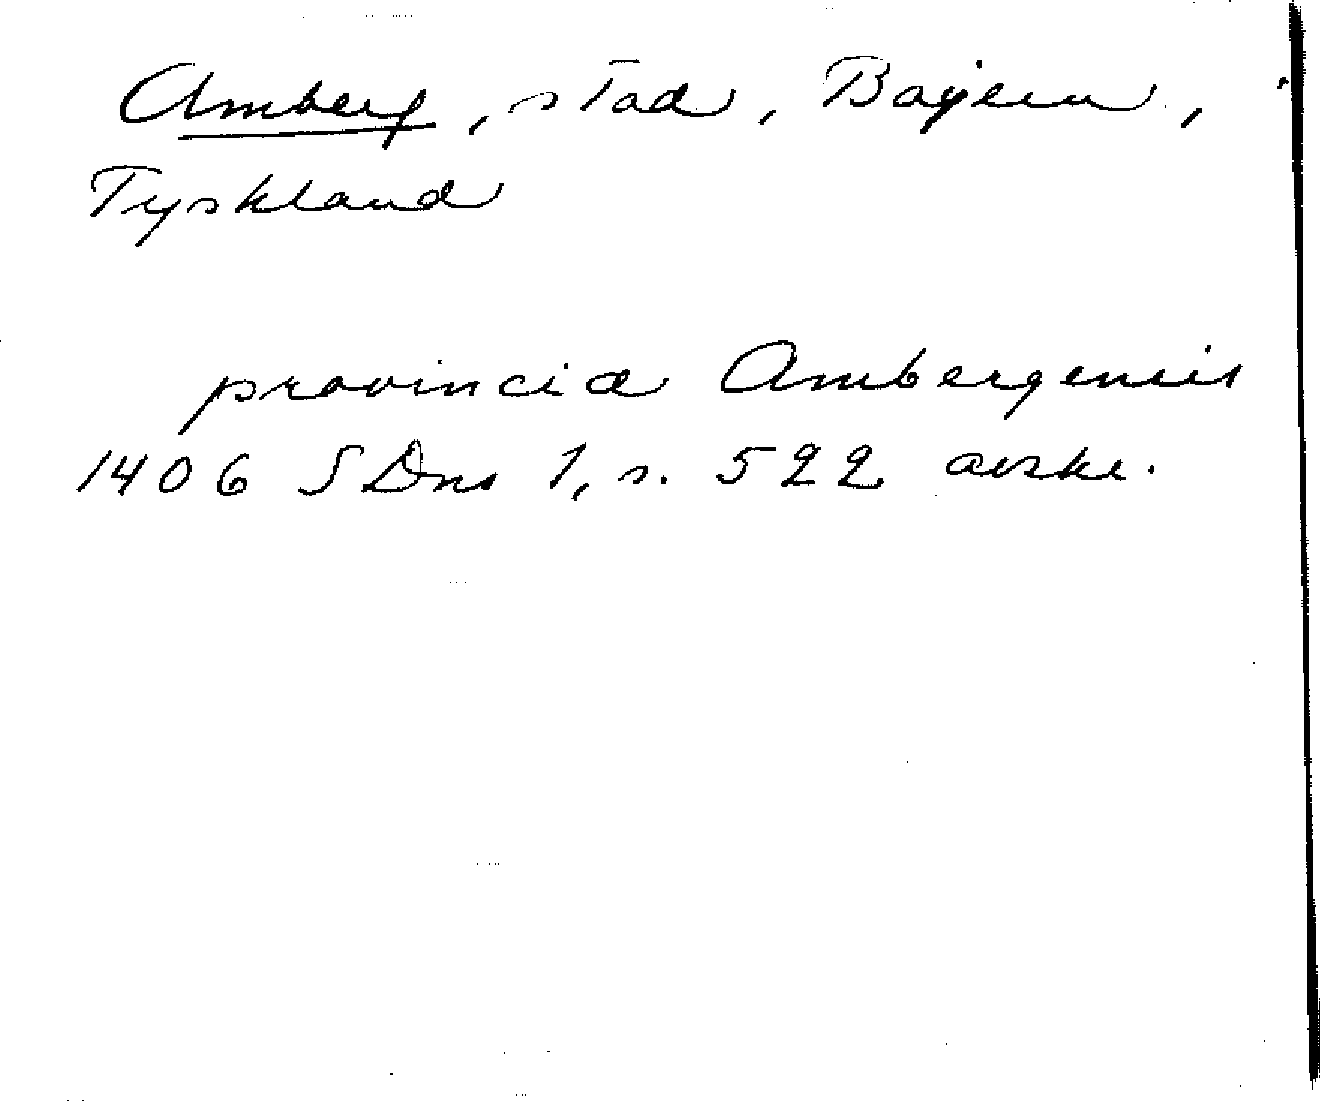 Amberg, stad, Bajern,
Tyskland
provincia Ambergensis
1406 SDns 1, s. 522 avskr.